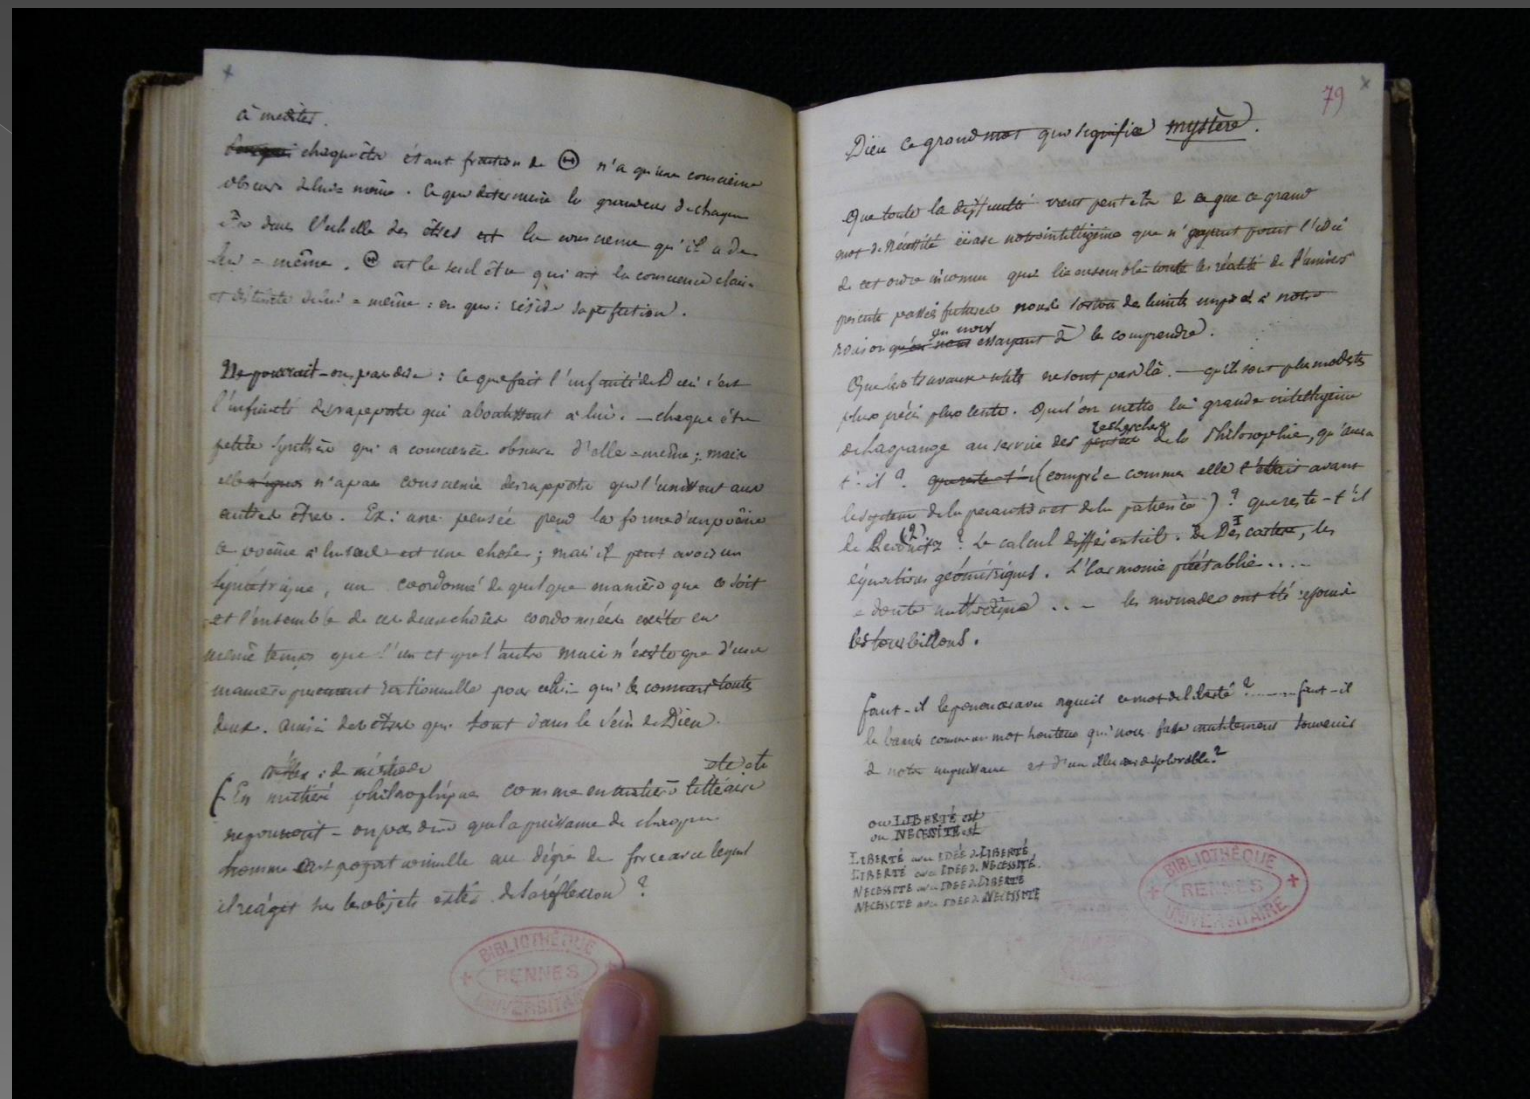 à méditer.
chaque être étant fraction de Θ n'a qu'une conscience
obscure de lui = même. Ce qui détermine la grandeur de chaque
être dans l'échelle des êtres est la conscience qu'il a de
lui = même. Θ est le seul être qui ait la conscience claire
et distincte de lui = même : en quoi réside sa perfection.
Ne pourrait-on pas dire : ce que fait l'infinité de Dieu c'est
l'infinité des rapports qui aboutissent à lui. — chaque être
petite synthèse qui a conscience obscure d'elle = même ; mais
elle n'a pas conscience des rapports qui l'unissent aux
autres êtres. Ex: une pensée prend la forme d'un poème
ce poème à lui seul est une chose ; mais il peut avoir un
symétrique, un coordonné de quelque manière que ce soit
et l'ensemble de ces deux choses coordonnées existe en
même temps que l'un et que l'autre mais n'existe que d'une
manière rationnelle pour celui qui les connait toutes
deux. ainsi des êtres qui sont dans le sein de Dieu.
(En matière philosophique comme en matière littéraire
ne pourrait-on pas dire que la puissance de chaque
homme est proportionnelle au degré de force avec lequel
il réagit sur les objets de la réflexion ?
79
Dieu ce grand mot qui signifie mystère.
Que toute la difficulté vient peut être de ce que ce grand
mot de Nécessité écrase notre intelligence que n'ayant point l'idée
de cet ordre inconnu qui lie ensemble toute les réalité de l'univers
présente passées futures nous de limite imposée à notre
en vain
raison essayant à le comprendre.
Que les travaux utiles ne sont pas là. — qu'ils sont plus modestes
plus précis plus lents. Qu'l'on mette la grande intelligence
recherches
de Lagrange au service des pensées de la Philosophie, qu'aura
t-il ? que reste-t-il (comprise comme elle l'était avant
le système de la pesanteur et de la patience) ? que reste-t'il
(2) 1
de Leibnitz ? Le calcul différentiel. De Descartes, les
équations géométriques. L'harmonie préétablie . . . .
doute méthodique . . . les monades ont été rejoindre
les tourbillons.
Faut-il le prononcer avec orgueil ce mot de liberté ? ...... faut-il
le bannir comme un mot honteux qui nous fasse inutilement souvenir
de notre impuissance et d'une illusion déplorable ?
ou LIBERTÉ est
ou NÉCESSITÉ est
LIBERTÉ avec IDÉE de LIBERTÉ
LIBERTÉ avec IDÉE de NÉCESSITÉ.
NÉCESSITÉ avec IDÉE de LIBERTÉ
NÉCESSITÉ avec IDÉE de NÉCESSITÉ
BIBLIOTHÈQUE
RENNES
UNIVERSITAIRE
BIBLIOTHÈQUE
RENNES
UNIVERSITAIRE